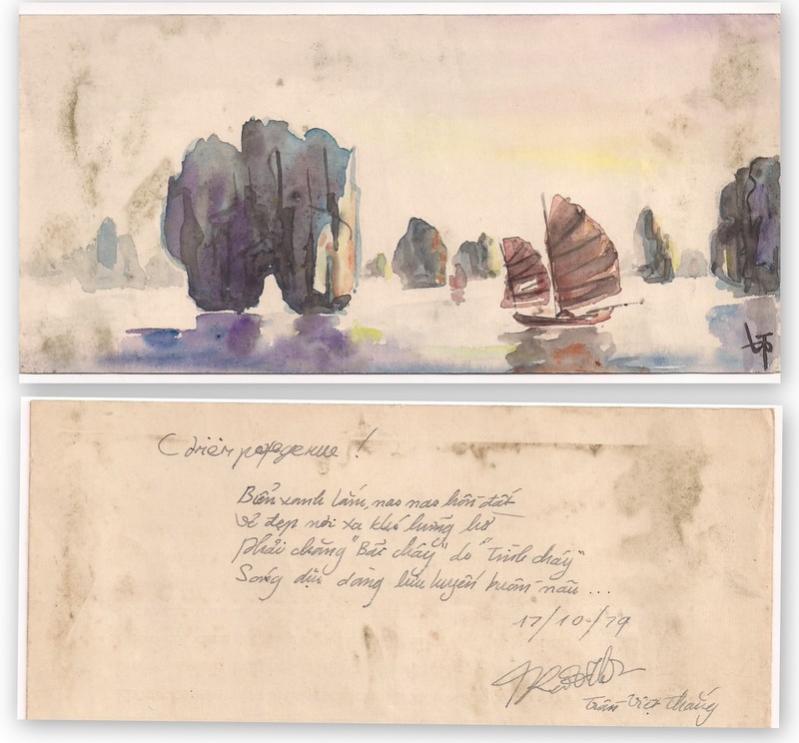 С днем рождение !
Biển xanh lắm, nao nao hồn đất
Vẻ đẹp nơi xa khó hững hờ
Phải chăng "Bãi cháy" do "Tình cháy"
Sóng dịu dàng lưu luyến
17/10/79
Trần Việt Thắng